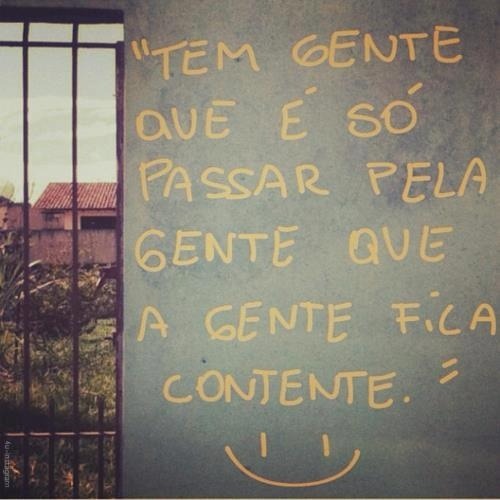 "TEM GENTE
QUE É SÓ
PASSAR PELA
GENTE QUE
A GENTE FICA
CONTENTE."